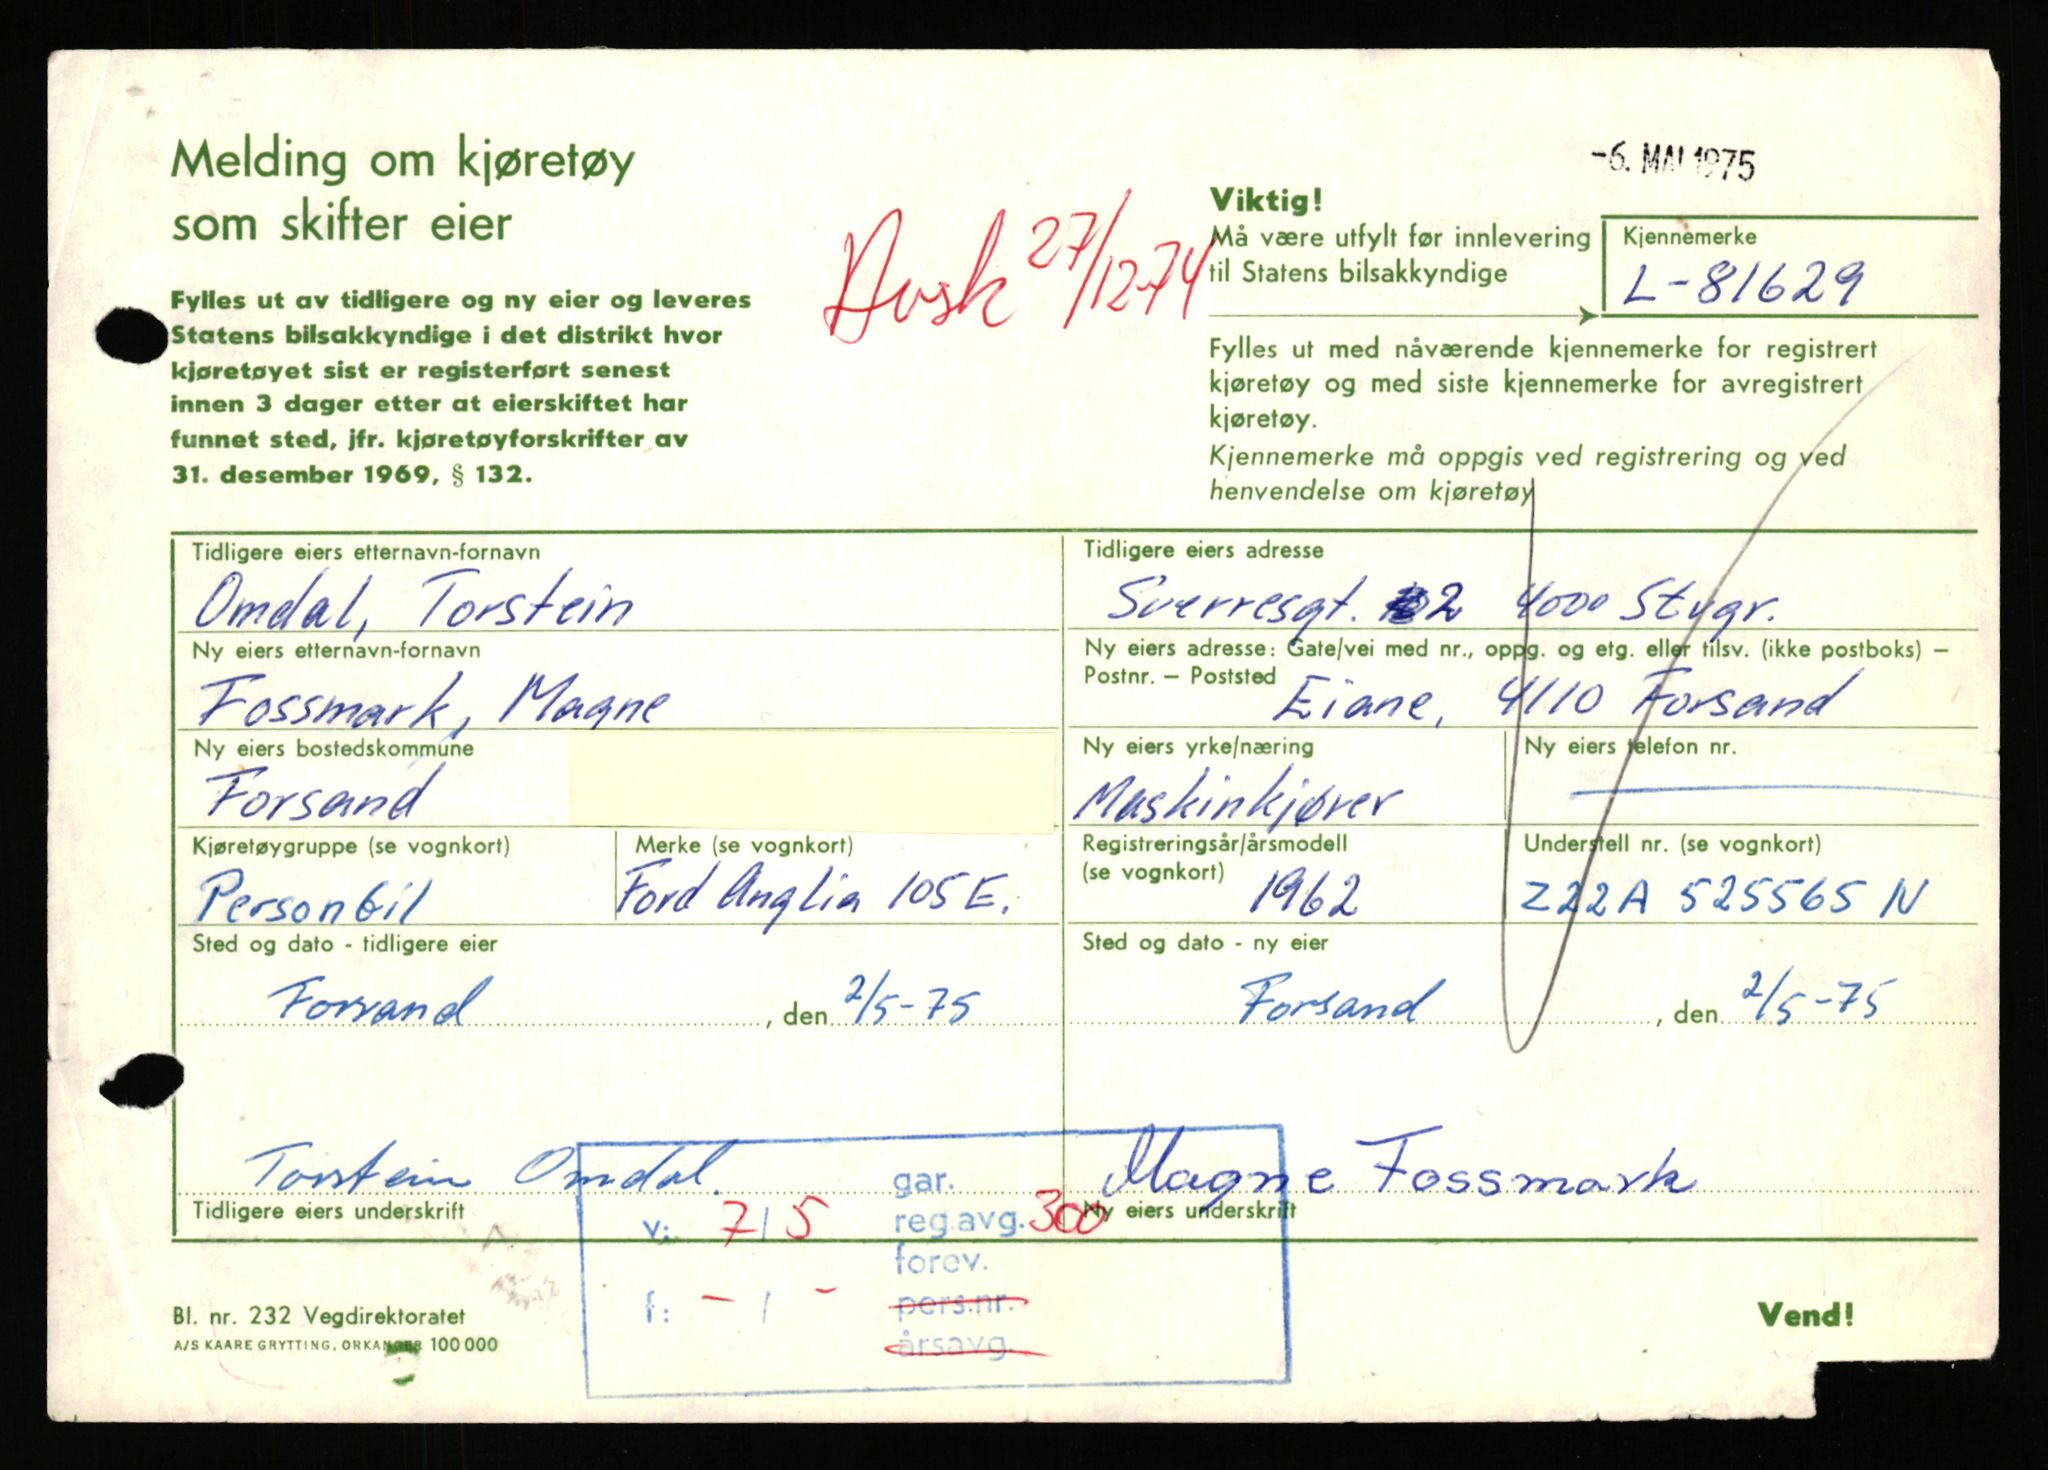 Melding om kjøretøy
som skifter eier
Fylles ut av tidligere og ny eier og leveres
Statens bilsakkyndige i det distrikt hvor
kjøretøyet sist er registerført senest
innen 3 dager etter at eierskiftet har
funnet sted, jfr. kjøretøyforskrifter av
31. desember 1969, § 132.
Avsk 27/12-74
-6. MAI 1975
Viktig!
Må være utfylt før innlevering
til Statens bilsakkyndige
Kjennemerke
L-81629
Fylles ut med nåværende kjennemerke for registrert
kjøretøy og med siste kjennemerke for avregistrert
kjøretøy.
Kjennemerke må oppgis ved registrering og ved
henvendelse om kjøretøy
Tidligere eiers etternavn-fornavn
Omdal, Torstein
Tidligere eiers adresse
Sverresgt. 2 4000 Stvgr.
Ny eiers etternavn-fornavn
Fossmark, Magne
Ny eiers adresse: Gate/vei med nr., oppg. og etg. eller tilsv. (ikke postboks) –
Postnr. – Poststed Eiane, 4110 Forsand
Ny eiers bostedskommune
Forsand
Ny eiers yrke/næring
Maskinkjører
Ny eiers telefon nr.
Kjøretøygruppe (se vognkort)
Personbil
Merke (se vognkort)
Ford Anglia 105 E.
Registreringsår/årsmodell
(se vognkort) 1962
Understell nr. (se vognkort)
Z22A 525565 N
Sted og dato - tidligere eier
Forsand, den 2/5-75
Sted og dato - ny eier
Forsand, den 2/5-75
Torstein Omdal.
Tidligere eiers underskrift
Magne Fossmark
Ny eiers underskrift
gar.
v: 7/5 reg.avg. 300
forev.
f: - / - pers.nr.
årsavg.
Bl. nr. 232 Vegdirektoratet
A/S KAARE GRYTTING, ORKANGER 100 000
Vend!